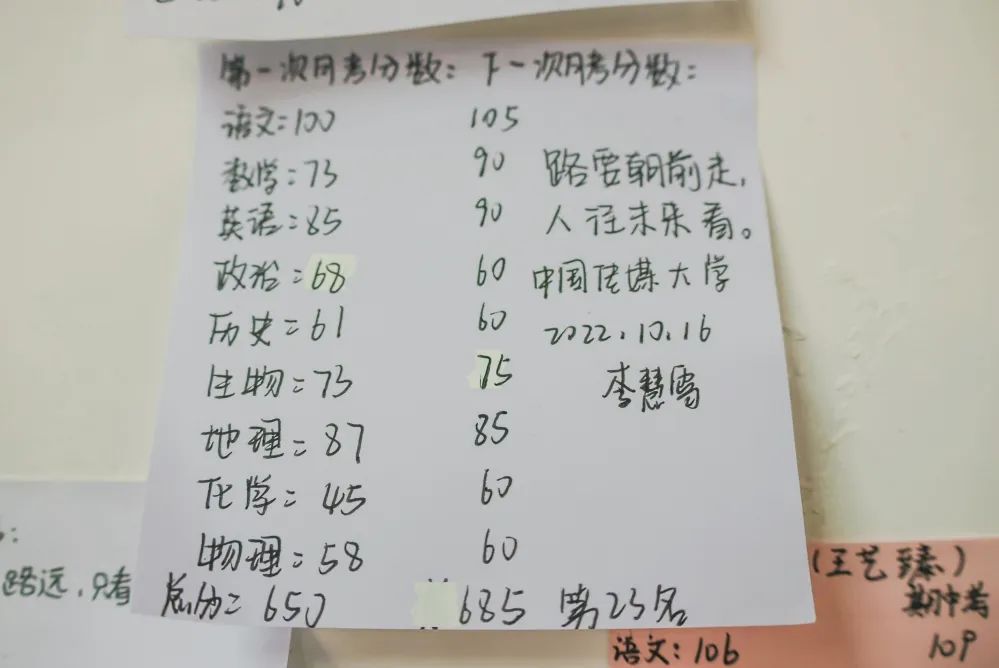 第一次月考分数： 下一次月考分数：
语文：100 105
数学：73 90 路要朝前走，
英语：85 90 人往未来看。
政治：68 60 中国传媒大学
历史：61 60 2022.10.16
生物：73 75 李慧雪
地理：87 85
化学：45 60
物理：58 60
总分：650 685 第23名
路远，只看
（王艺臻）
期中考
语文：106 109